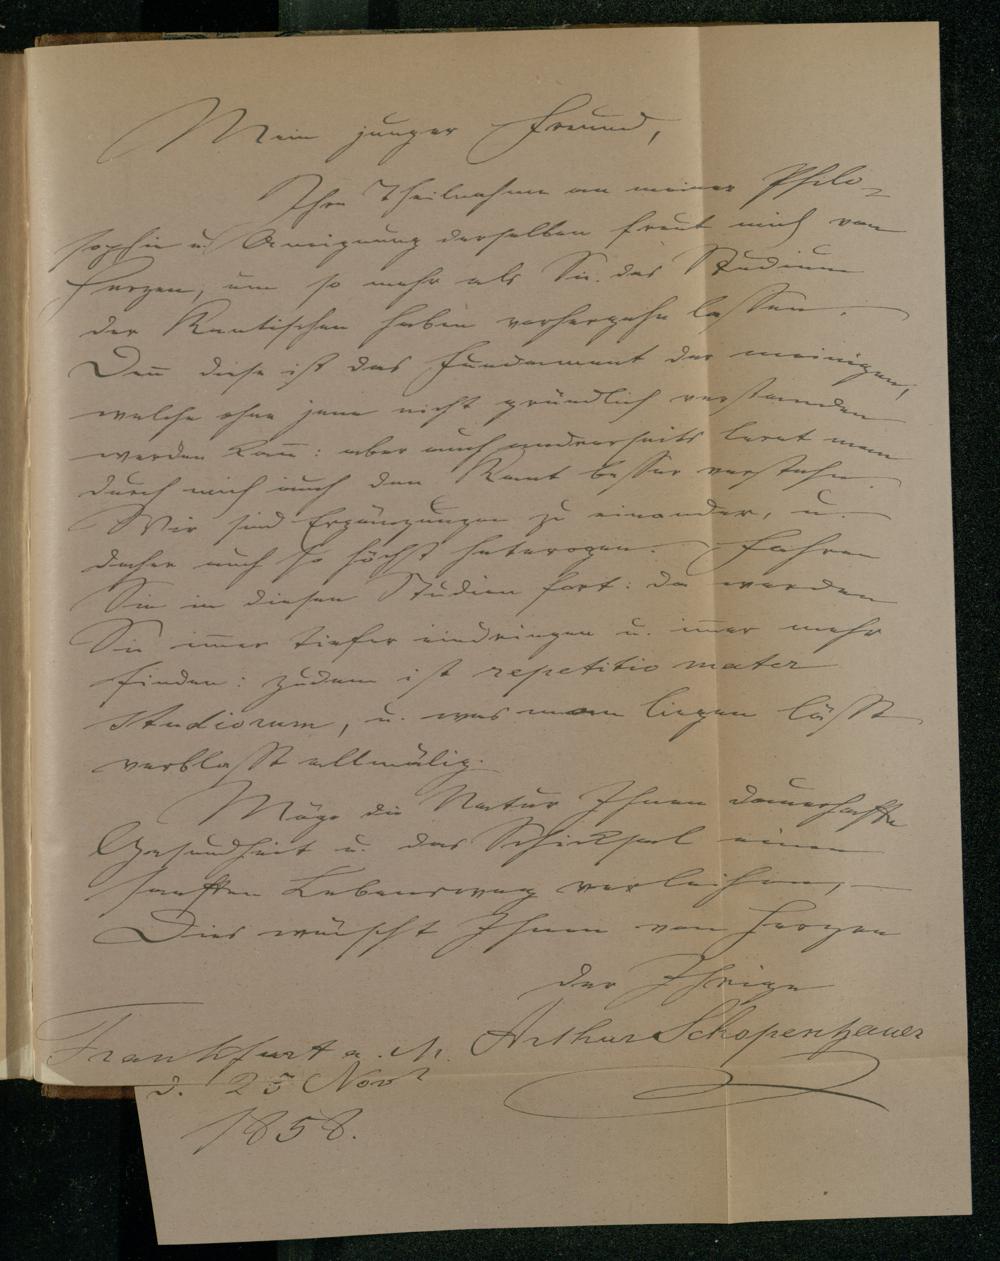 Mein junger Freund,
Ihre Theilnahme an meiner Philo-
sophie u. Aneignung derselben freut mich von
Herzen, um so mehr als Sie das Studium
der Kantischen haben vorhergehn lassen.
Den̅ diese ist das Fundament der meinigen,
welche ohne jene nicht gründlich verstanden
werden kan̅: aber auch andrerseits lernt man
durch mich auch den Kant besser verstehn.
Wir sind Ergänzungen zu einander, u.
daher auch so höchst heterogen. Fahren
Sie in diesen Studien fort: da werden
Sie im̅er tiefer eindringen u. im̅er mehr
finden: zudem ist repetitio mater
studiorum, u. was man liegen läßt
verblaßt allmälig.
Möge die Natur Ihnen dauerhafte
Gesundheit u. das Schicksal einen
sanften Lebensweg verleihen,
Dies wünscht Ihnen von Herzen
der Ihrige
Arthur Schopenhauer
Frankfurt a. M.
d. 25 Novr
1858.